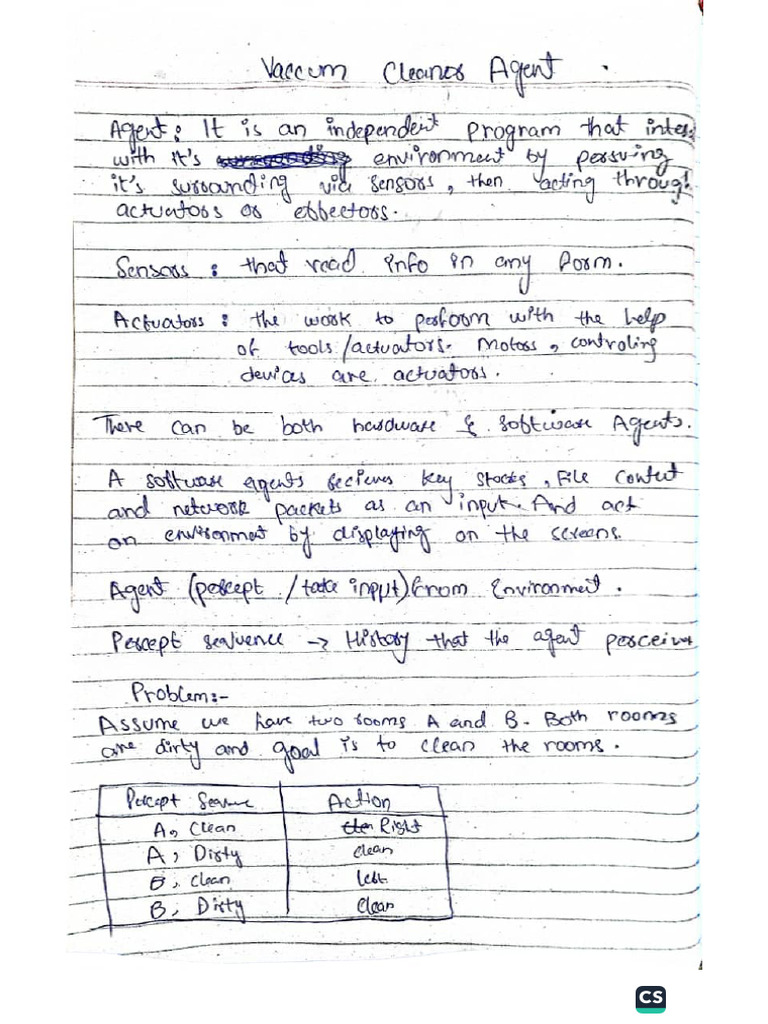 Vaccum Cleaner Agent .
Agent : It is an independent program that inter
with it's environment by persuing
it's surrounding via sensors, then acting through
actuators or effectors.
Sensors : that read info in any form.
Actuators : the work to perform with the help
of tools/actuators. Motors, controling
devices are actuators.
There can be both hardware & software Agents.
A software agents recieves key stocks, File content
and network packets as an input. And act
on environment by displaying on the screens.
Agent (percept / take input) from Environment.
Percept sequence -> History that the agent perceive
Problem:-
Assume we have two rooms A and B. Both rooms
are dirty and goal is to clean the rooms.
Percept Action
A, Clean Right
A, Dirty clean
B, clean left
B, Dirty clean
CS